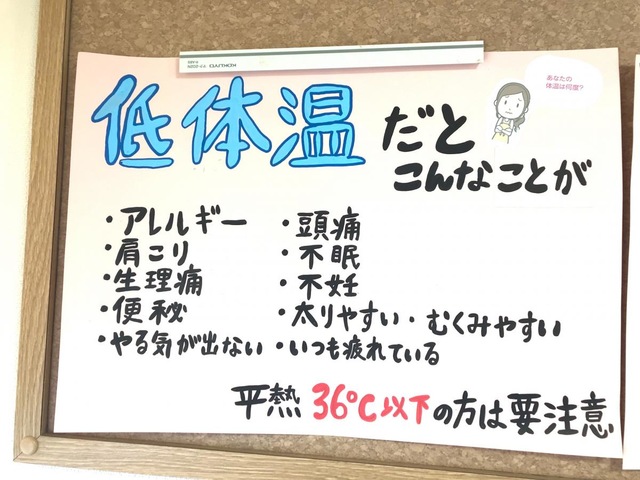 低体温だと
あなたの
体温は何度?
こんなことが
・アレルギー
・肩こり
・生理痛
・便秘
・やる気が出ない
・頭痛
・不眠
・不妊
・太りやすい・むくみやすい
・いつも疲れている
平熱 36℃以下の方は要注意